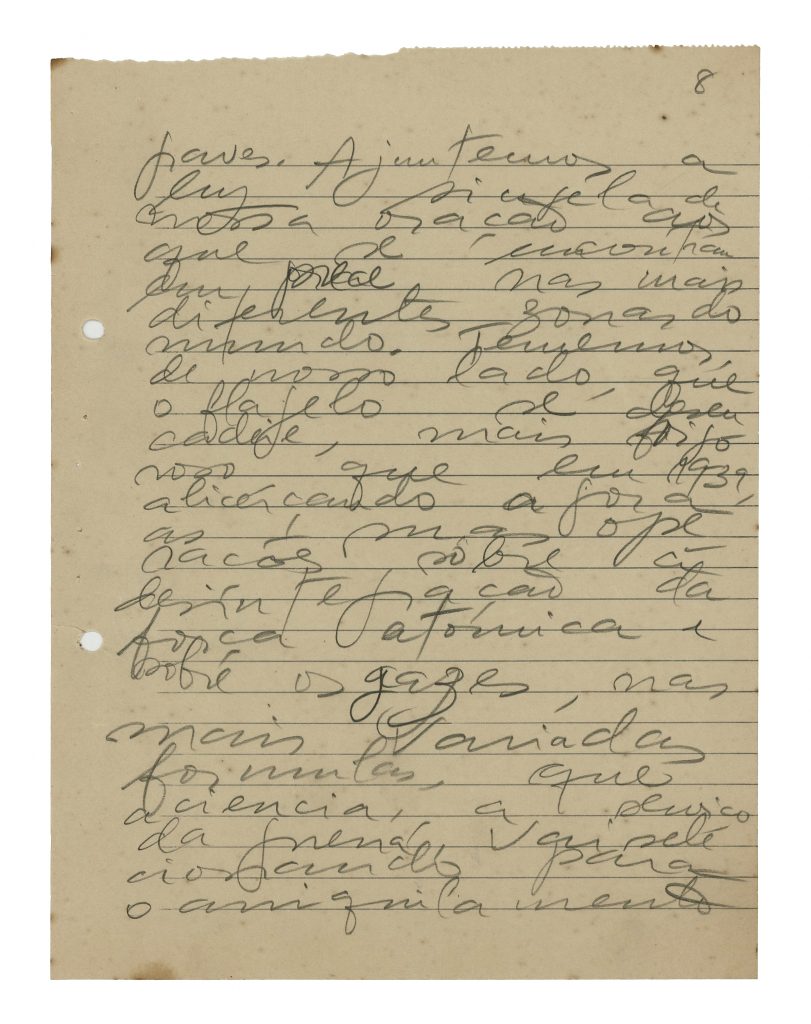 8
graves. Ajuntemos a
luz singela de
nossa oração aos
que se encontram
em prece nas mais
diferentes zonas do
mundo. Tememos,
de nosso lado, que
o flagelo se desen
cadeie, mais rigo
roso que em 1939,
alicerçando agora,
as suas ope
rações sobre a
desintegração da
força atómica e
sobre os gazes, nas
mais variadas
formulas, que
a ciencia, a serviço
da guerra, vai sele
cionando para
o aniquilamento